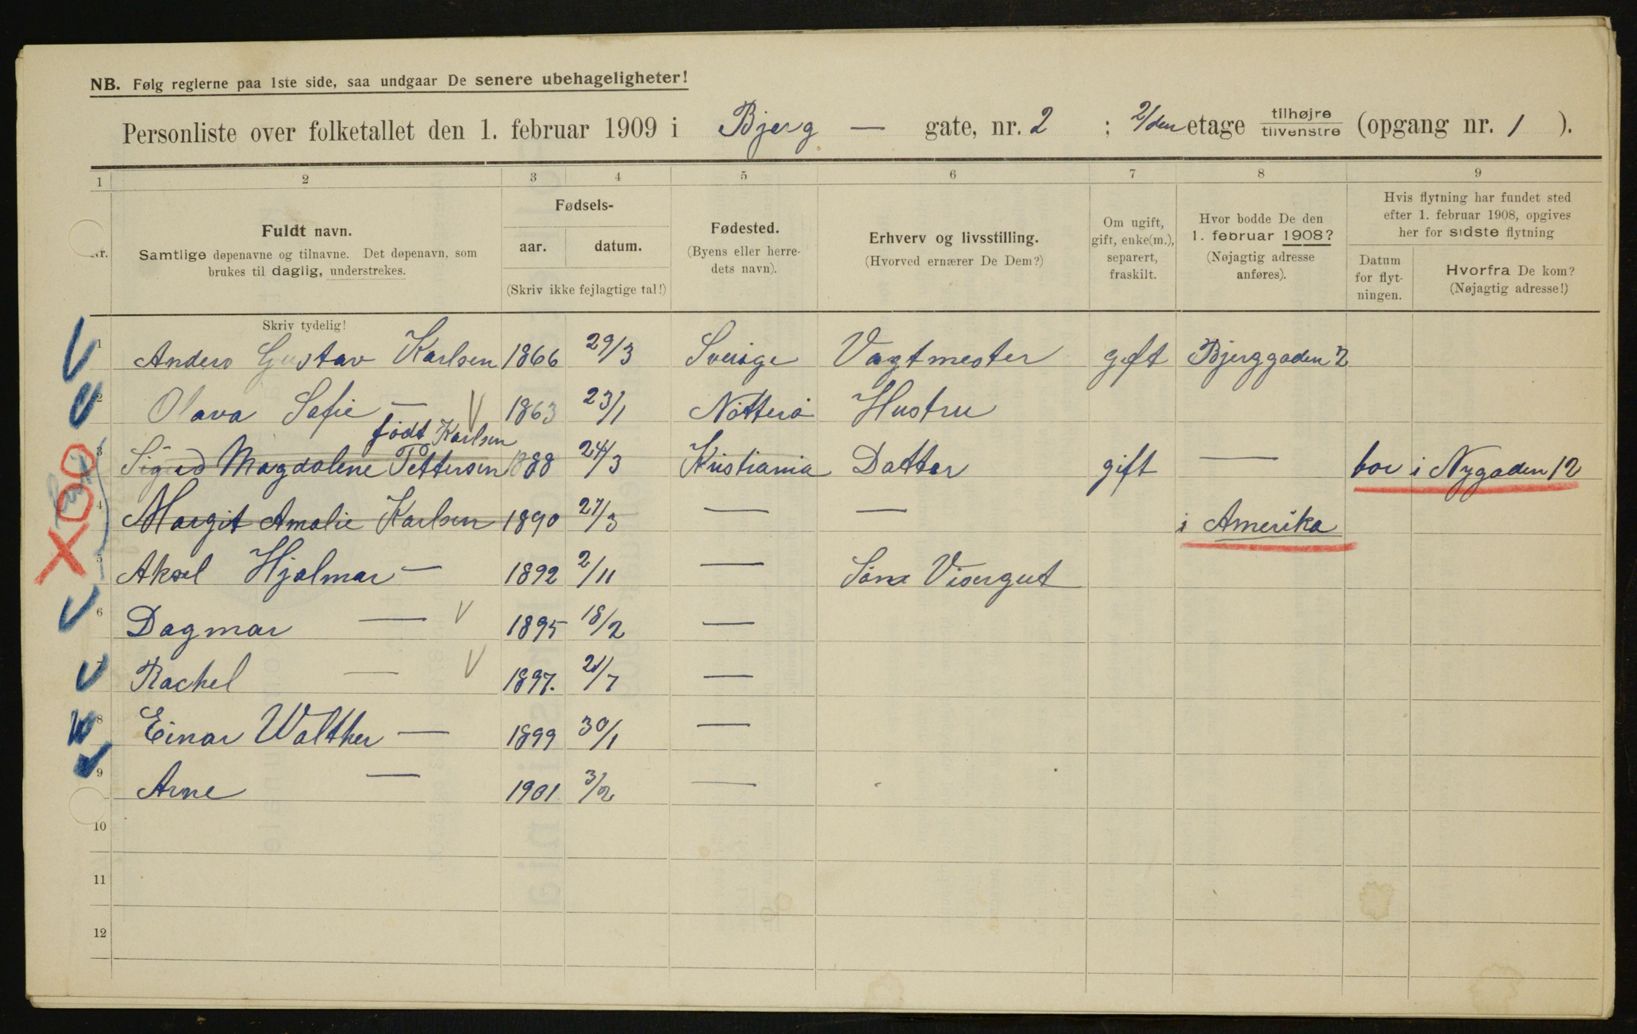 NB. Følg reglerne paa 1ste side, saa undgaar De senere ubehageligheter!
Personliste over folketallet den 1. februar 1909 i Bjerg — gate, nr. 2 ; 2/den etage tilhøjre tilvenstre (opgang nr. 1 ).
1 2 3 4 5 6 7 8 9
Nr.
Fuldt navn.
Samtlige døpenavne og tilnavne. Det døpenavn, som
brukes til daglig, understrekes.
Fødsels-
aar. datum.
(Skriv ikke fejlagtige tal!)
Fødested.
(Byens eller herre-
dets navn).
Erhverv og livsstilling.
(Hvorved ernærer De Dem?)
Om ugift,
gift, enke(m.),
separert,
fraskilt.
Hvor bodde De den
1. februar 1908?
(Nøjagtig adresse
anføres).
Hvis flytning har fundet sted
efter 1. februar 1908, opgives
her for sidste flytning
Datum
for flyt-
ningen.
Hvorfra De kom?
(Nøjagtig adresse!)
Skriv tydelig!
1 Anders Gustav Karlsen 1866 29/3 Sverige Vagtmester gift Bjerggaden 2
2 Olava Sofie — 1863 23/1 Nøtterø Hustru
født Karlsen
3 Sigrid Magdalene Pettersen 1888 24/3 Kristiania Datter gift — bor i Nygaden 12
4 Margit Amalie Karlsen 1890 27/3 — — i Amerika
5 Aksel Hjalmar — 1892 2/11 — Søn Visergut
6 Dagmar — 1895 18/2 —
7 Rachel — 1897. 21/7 —
8 Einar Walther — 1899 30/1 —
9 Arne — 1901 3/2 —
10
11
12